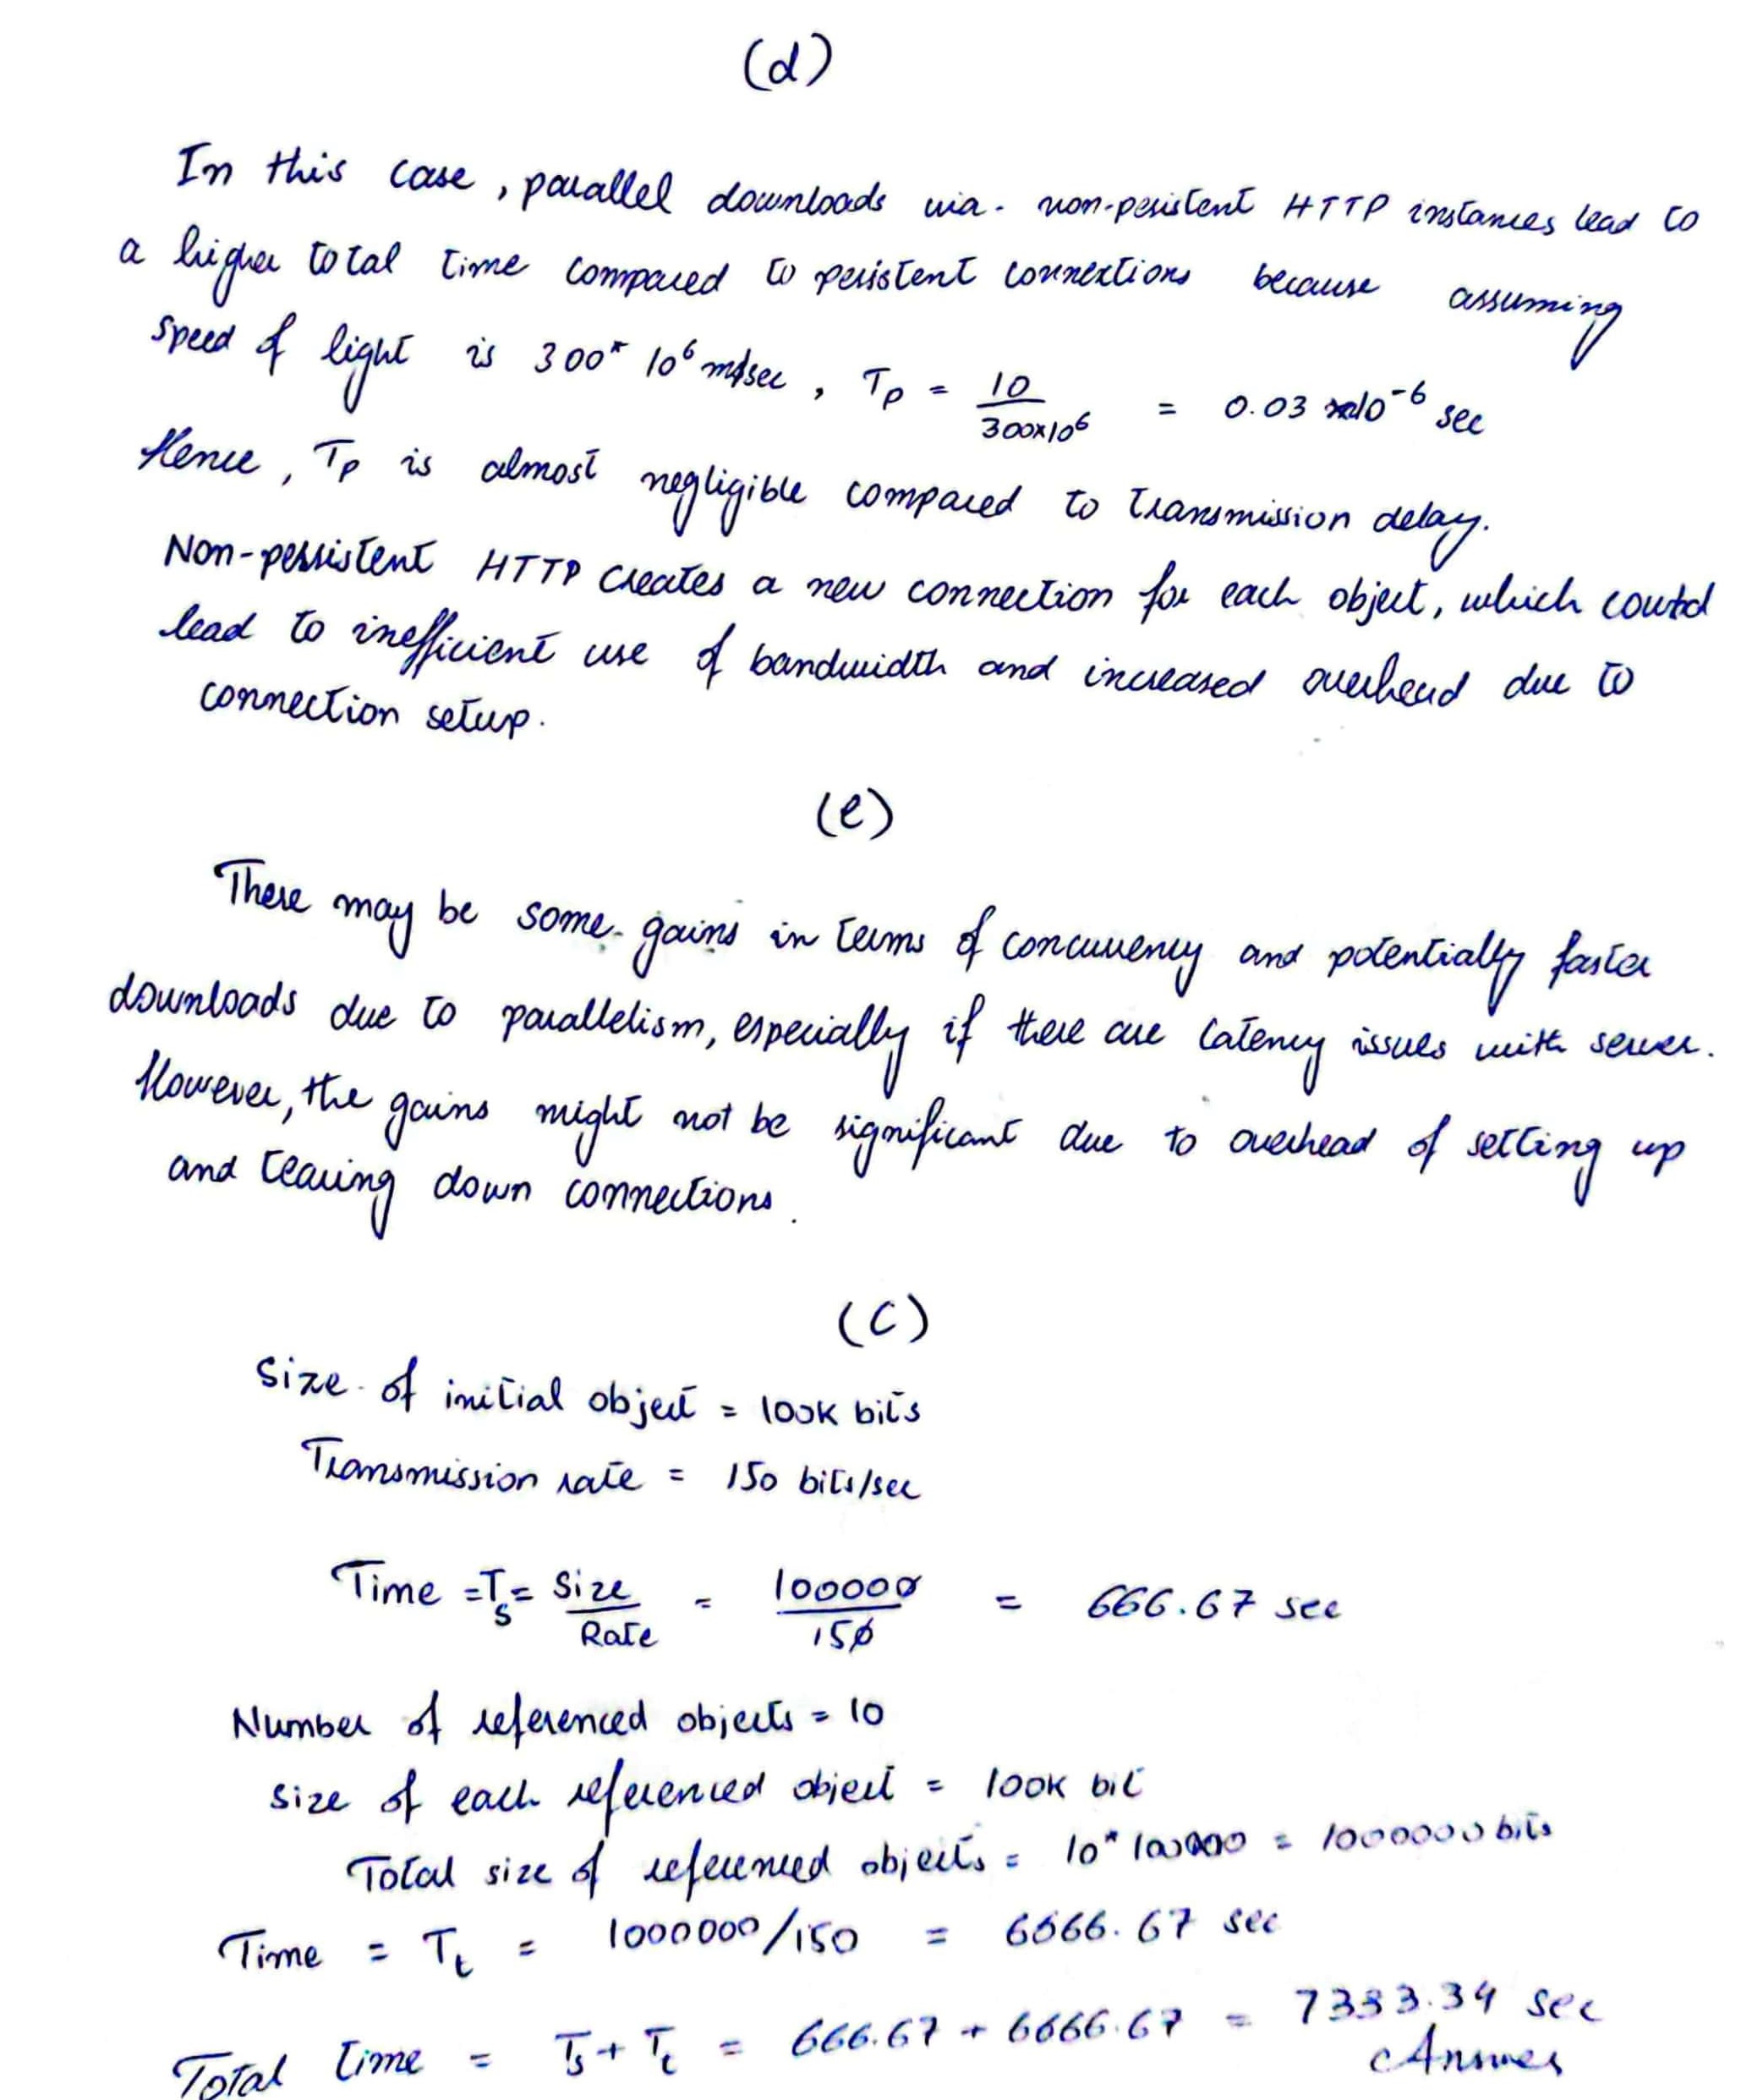 (d)
In this case, parallel downloads via non-persistent HTTP instances lead to
a higher total time compared to persistent connections because assuming
speed of light is 300* 10^6 m/sec, Tp = 10/300x10^6 = 0.03 x10^-6 sec
Hence, Tp is almost negligible compared to transmission delay.
Non-persistent HTTP creates a new connection for each object, which could
lead to inefficient use of bandwidth and increased overhead due to
connection setup.
(e)
There may be some gains in terms of concurrency and potentially faster
downloads due to parallelism, especially if there are latency issues with server.
However, the gains might not be significant due to overhead of setting up
and tearing down connections.
(C)
Size of initial object = 100K bits
Transmission rate = 150 bits/sec
Time = Ts = Size/Rate = 100000/150 = 666.67 sec
Number of referenced objects = 10
Size of each referenced object = 100K bit
Total size of referenced objects = 10* 100000 = 1000000 bits
Time = Tt = 1000000/150 = 6666.67 sec
Total time = Ts + Tt = 666.67 + 6666.67 = 7333.34 sec
Answer